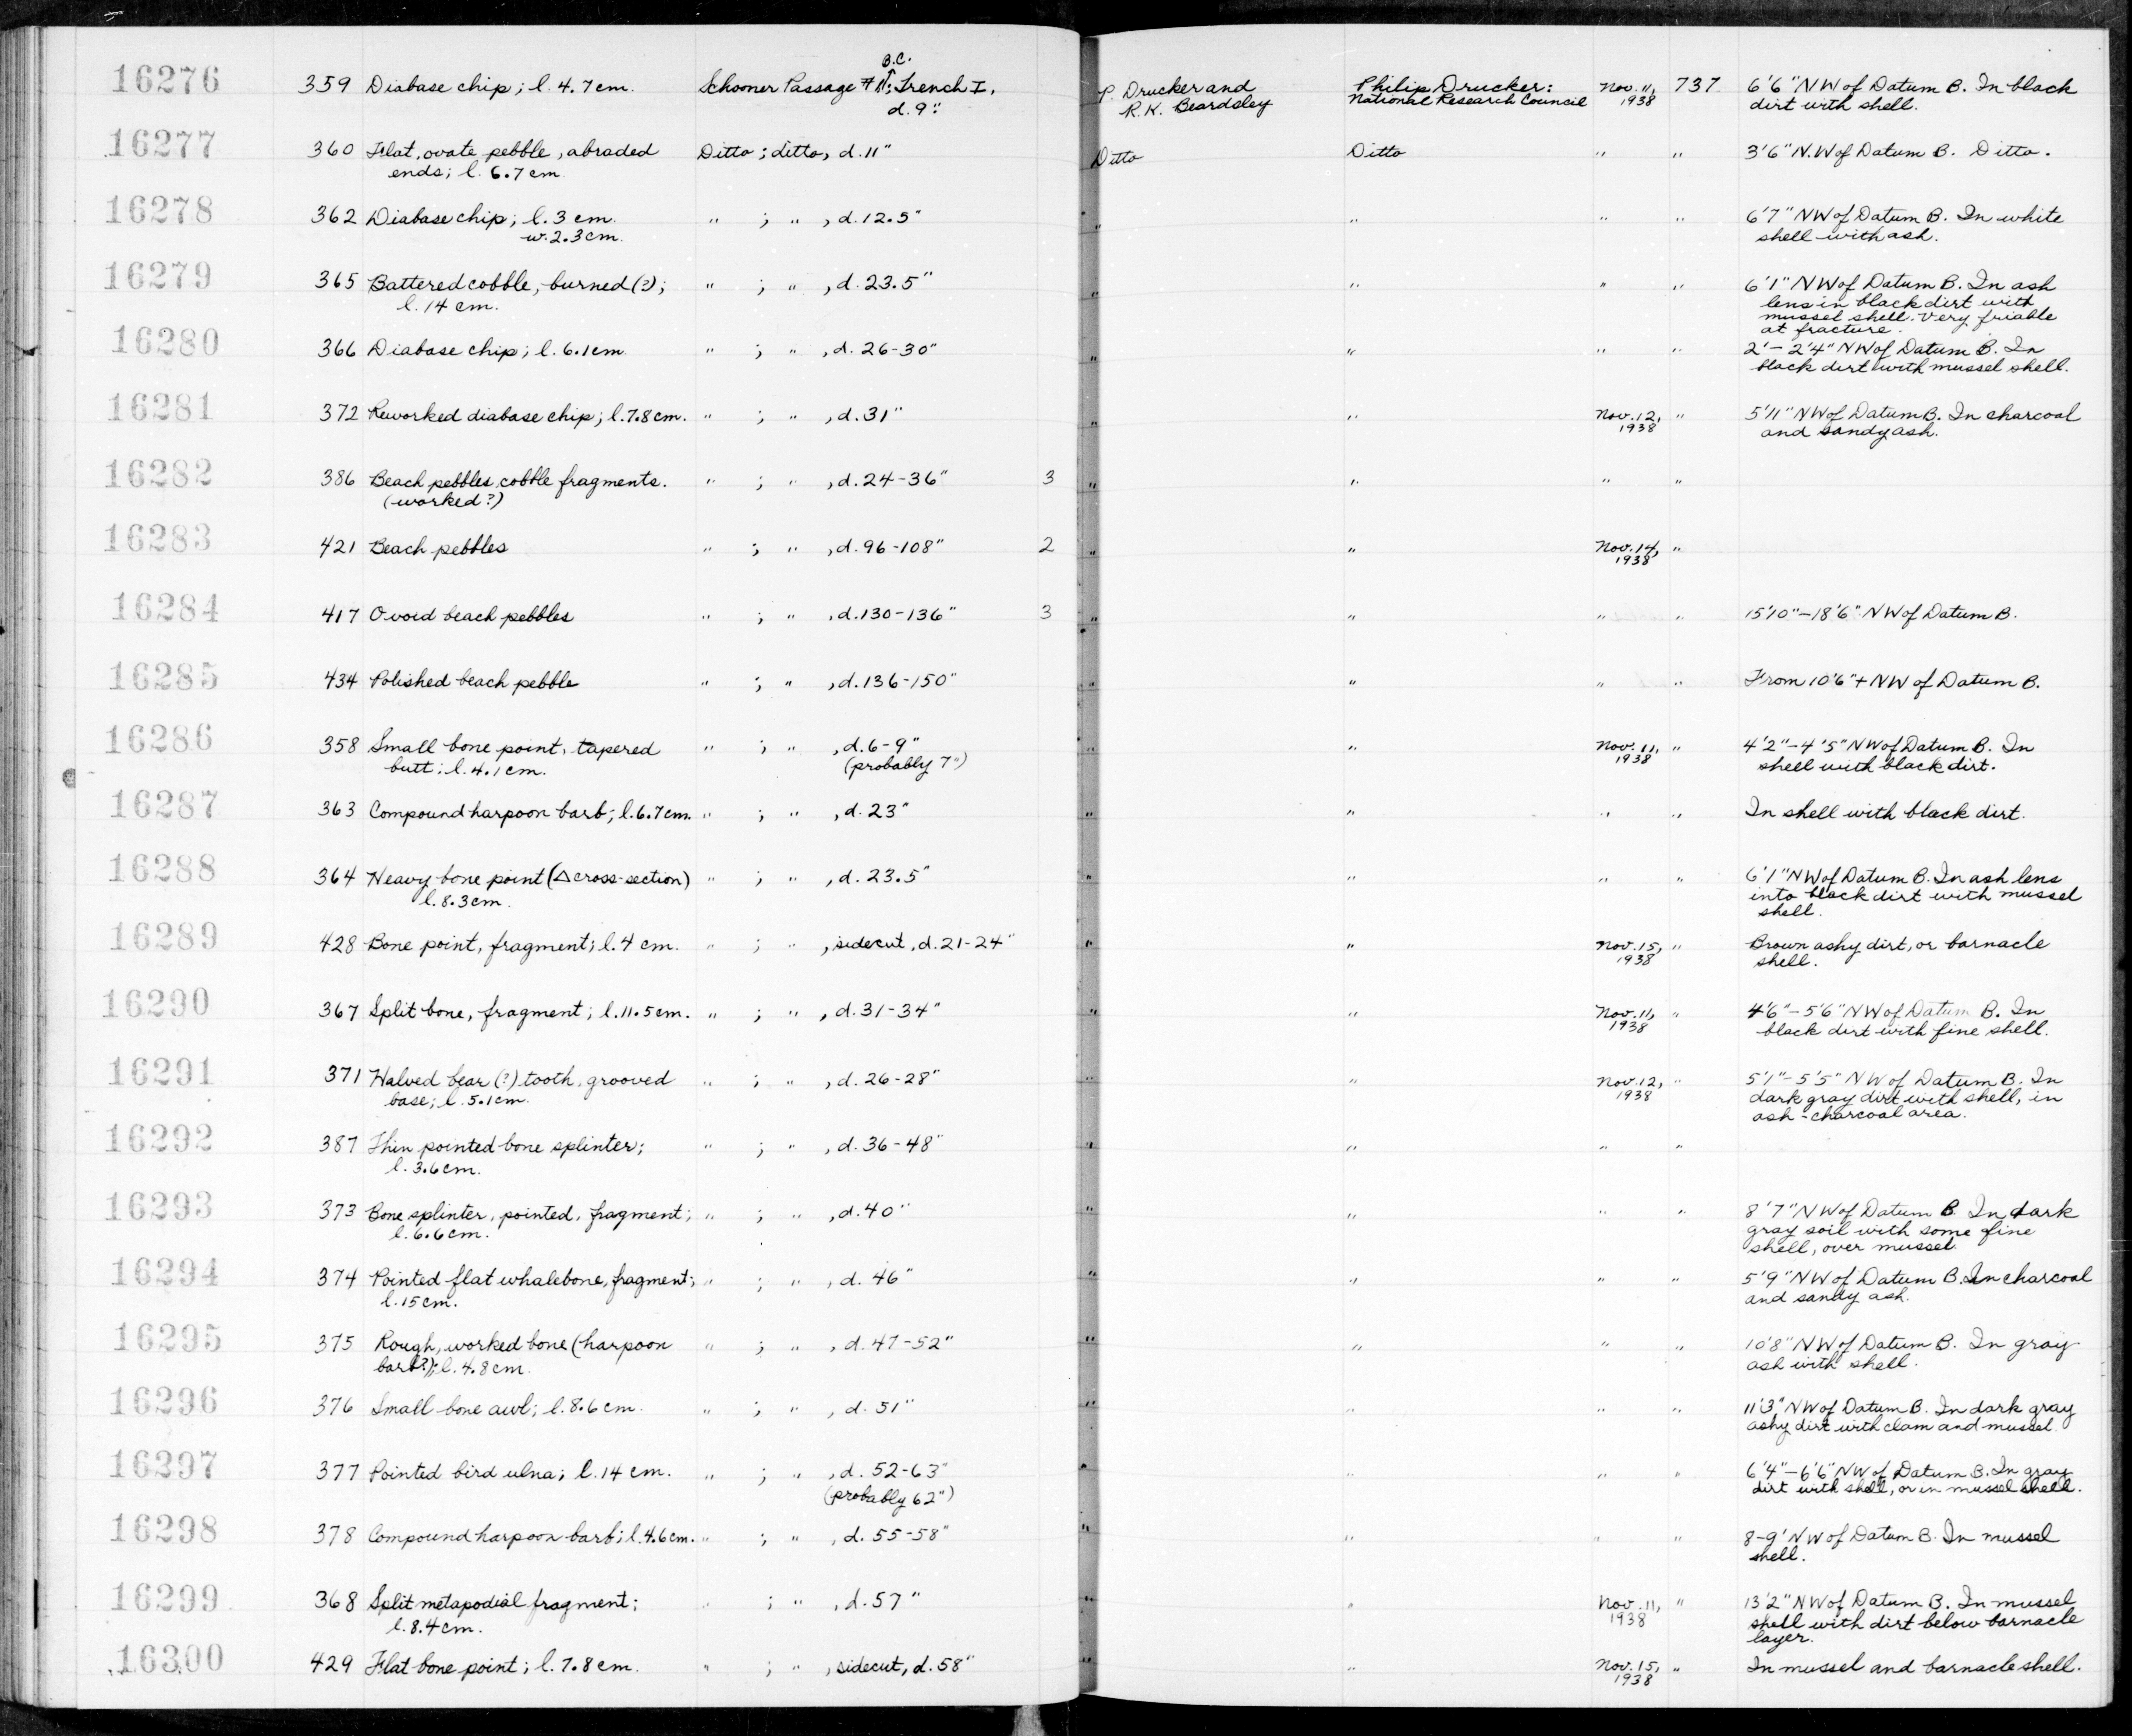 B.C.
16276 359 Diabase chip; l. 4.7cm. Schooner Passage #1; Trench I, P. Drucker and Philip Drucker: Nov. 11, 737 6'6" NW of Datum B. In black
d. 9". R. K. Beardsley National Research Council 1938 dirt with shell.
16277 360 Flat, ovate pebble, abraded Ditto; ditto, d. 11" Ditto Ditto " " 3'6" N.W of Datum B. Ditto.
ends; l. 6.7cm.
16278 362 Diabase chip; l. 3 cm. " ; " , d. 12.5" " " " " 6'7" NW of Datum B. In white
w. 2.3cm. shell with ash.
16279 365 Battered cobble, burned (?); " ; " , d. 23.5" " " " " 6'1" NW of Datum B. In ash
l. 14 cm. lens in black dirt with
mussel shell. Very friable
at fracture.
16280 366 Diabase chip; l. 6.1cm " ; " , d. 26-30" " " " " 2'-2'4" NW of Datum B. In
black dirt with mussel shell.
16281 372 Reworked diabase chip; l. 7.8cm. " ; " , d. 31" " " Nov. 12, " 5'11" NW of Datum B. In charcoal
1938 and sandy ash.
16282 386 Beach pebbles, cobble fragments. " ; " , d. 24-36" 3 " " " "
(worked?)
16283 421 Beach pebbles " ; " , d. 96-108" 2 " " Nov. 14, "
1938
16284 417 Ovoid beach pebbles " ; " , d. 130-136" 3 " " " " 15'10"-18'6" NW of Datum B.
16285 434 Polished beach pebble " ; " , d. 136-150" " " " " From 10'6"+ NW of Datum B.
16286 358 Small bone point, tapered " ; " , d. 6-9" " " Nov. 11, " 4'2"-4'5" NW of Datum B. In
butt; l. 4.1cm. (probably 7") 1938 shell with black dirt.
16287 363 Compound harpoon barb; l. 6.7cm. " ; " , d. 23" " " " " In shell with black dirt.
16288 364 Heavy bone point (△ cross-section) " ; " , d. 23.5" " " " " 6'1" NW of Datum B. In ash lens
l. 8.3cm. into black dirt with mussel
shell.
16289 428 Bone point, fragment; l. 4 cm. " ; " , sidecut, d. 21-24" " " Nov. 15, " Brown ashy dirt, or barnacle
1938 shell.
16290 367 Split bone, fragment; l. 11.5cm. " ; " , d. 31-34" " " Nov. 11, " 4'6"-5'6" NW of Datum B. In
1938 black dirt with fine shell.
16291 371 Halved bear (?) tooth, grooved " ; " , d. 26-28" " " Nov. 12, " 5'1"-5'5" NW of Datum B. In
base; l. 5.1cm. 1938 dark gray dirt with shell, in
ash-charcoal area.
16292 387 Thin pointed bone splinter; " ; " , d. 36-48" " " " "
l. 3.6cm.
16293 373 Bone splinter, pointed, fragment; " ; " , d. 40" " " " " 8'7" NW of Datum B. In dark
l. 6.6cm. gray soil with some fine
shell, over mussel.
16294 374 Pointed flat whalebone, fragment; " ; " , d. 46" " " " " 5'9" NW of Datum B. In charcoal
l. 15cm. and sandy ash.
16295 375 Rough, worked bone (harpoon " ; " , d. 47-52" " " " " 10'8" NW of Datum B. In gray
barb?); l. 4.8cm. ash with shell.
16296 376 Small bone awl; l. 8.6cm. " ; " , d. 51" " " " " 11'3" NW of Datum B. In dark gray
ashy dirt with clam and mussel.
16297 377 Pointed bird ulna; l. 14 cm. " ; " , d. 52-63" " " " " 6'4"-6'6" NW of Datum B. In gray
(probably 62") dirt with shell, or in mussel shell.
16298 378 Compound harpoon barb; l. 4.6cm. " ; " , d. 55-58" " " " " 8-9' NW of Datum B. In mussel
shell.
16299 368 Split metapodial fragment; " ; " , d. 57" " " Nov. 11, " 13'2" NW of Datum B. In mussel
l. 8.4cm. 1938 shell with dirt below barnacle
layer.
16300 429 Flat bone point; l. 7.8cm. " ; " , sidecut, d. 58" " Nov. 15, " In mussel and barnacle shell.
1938